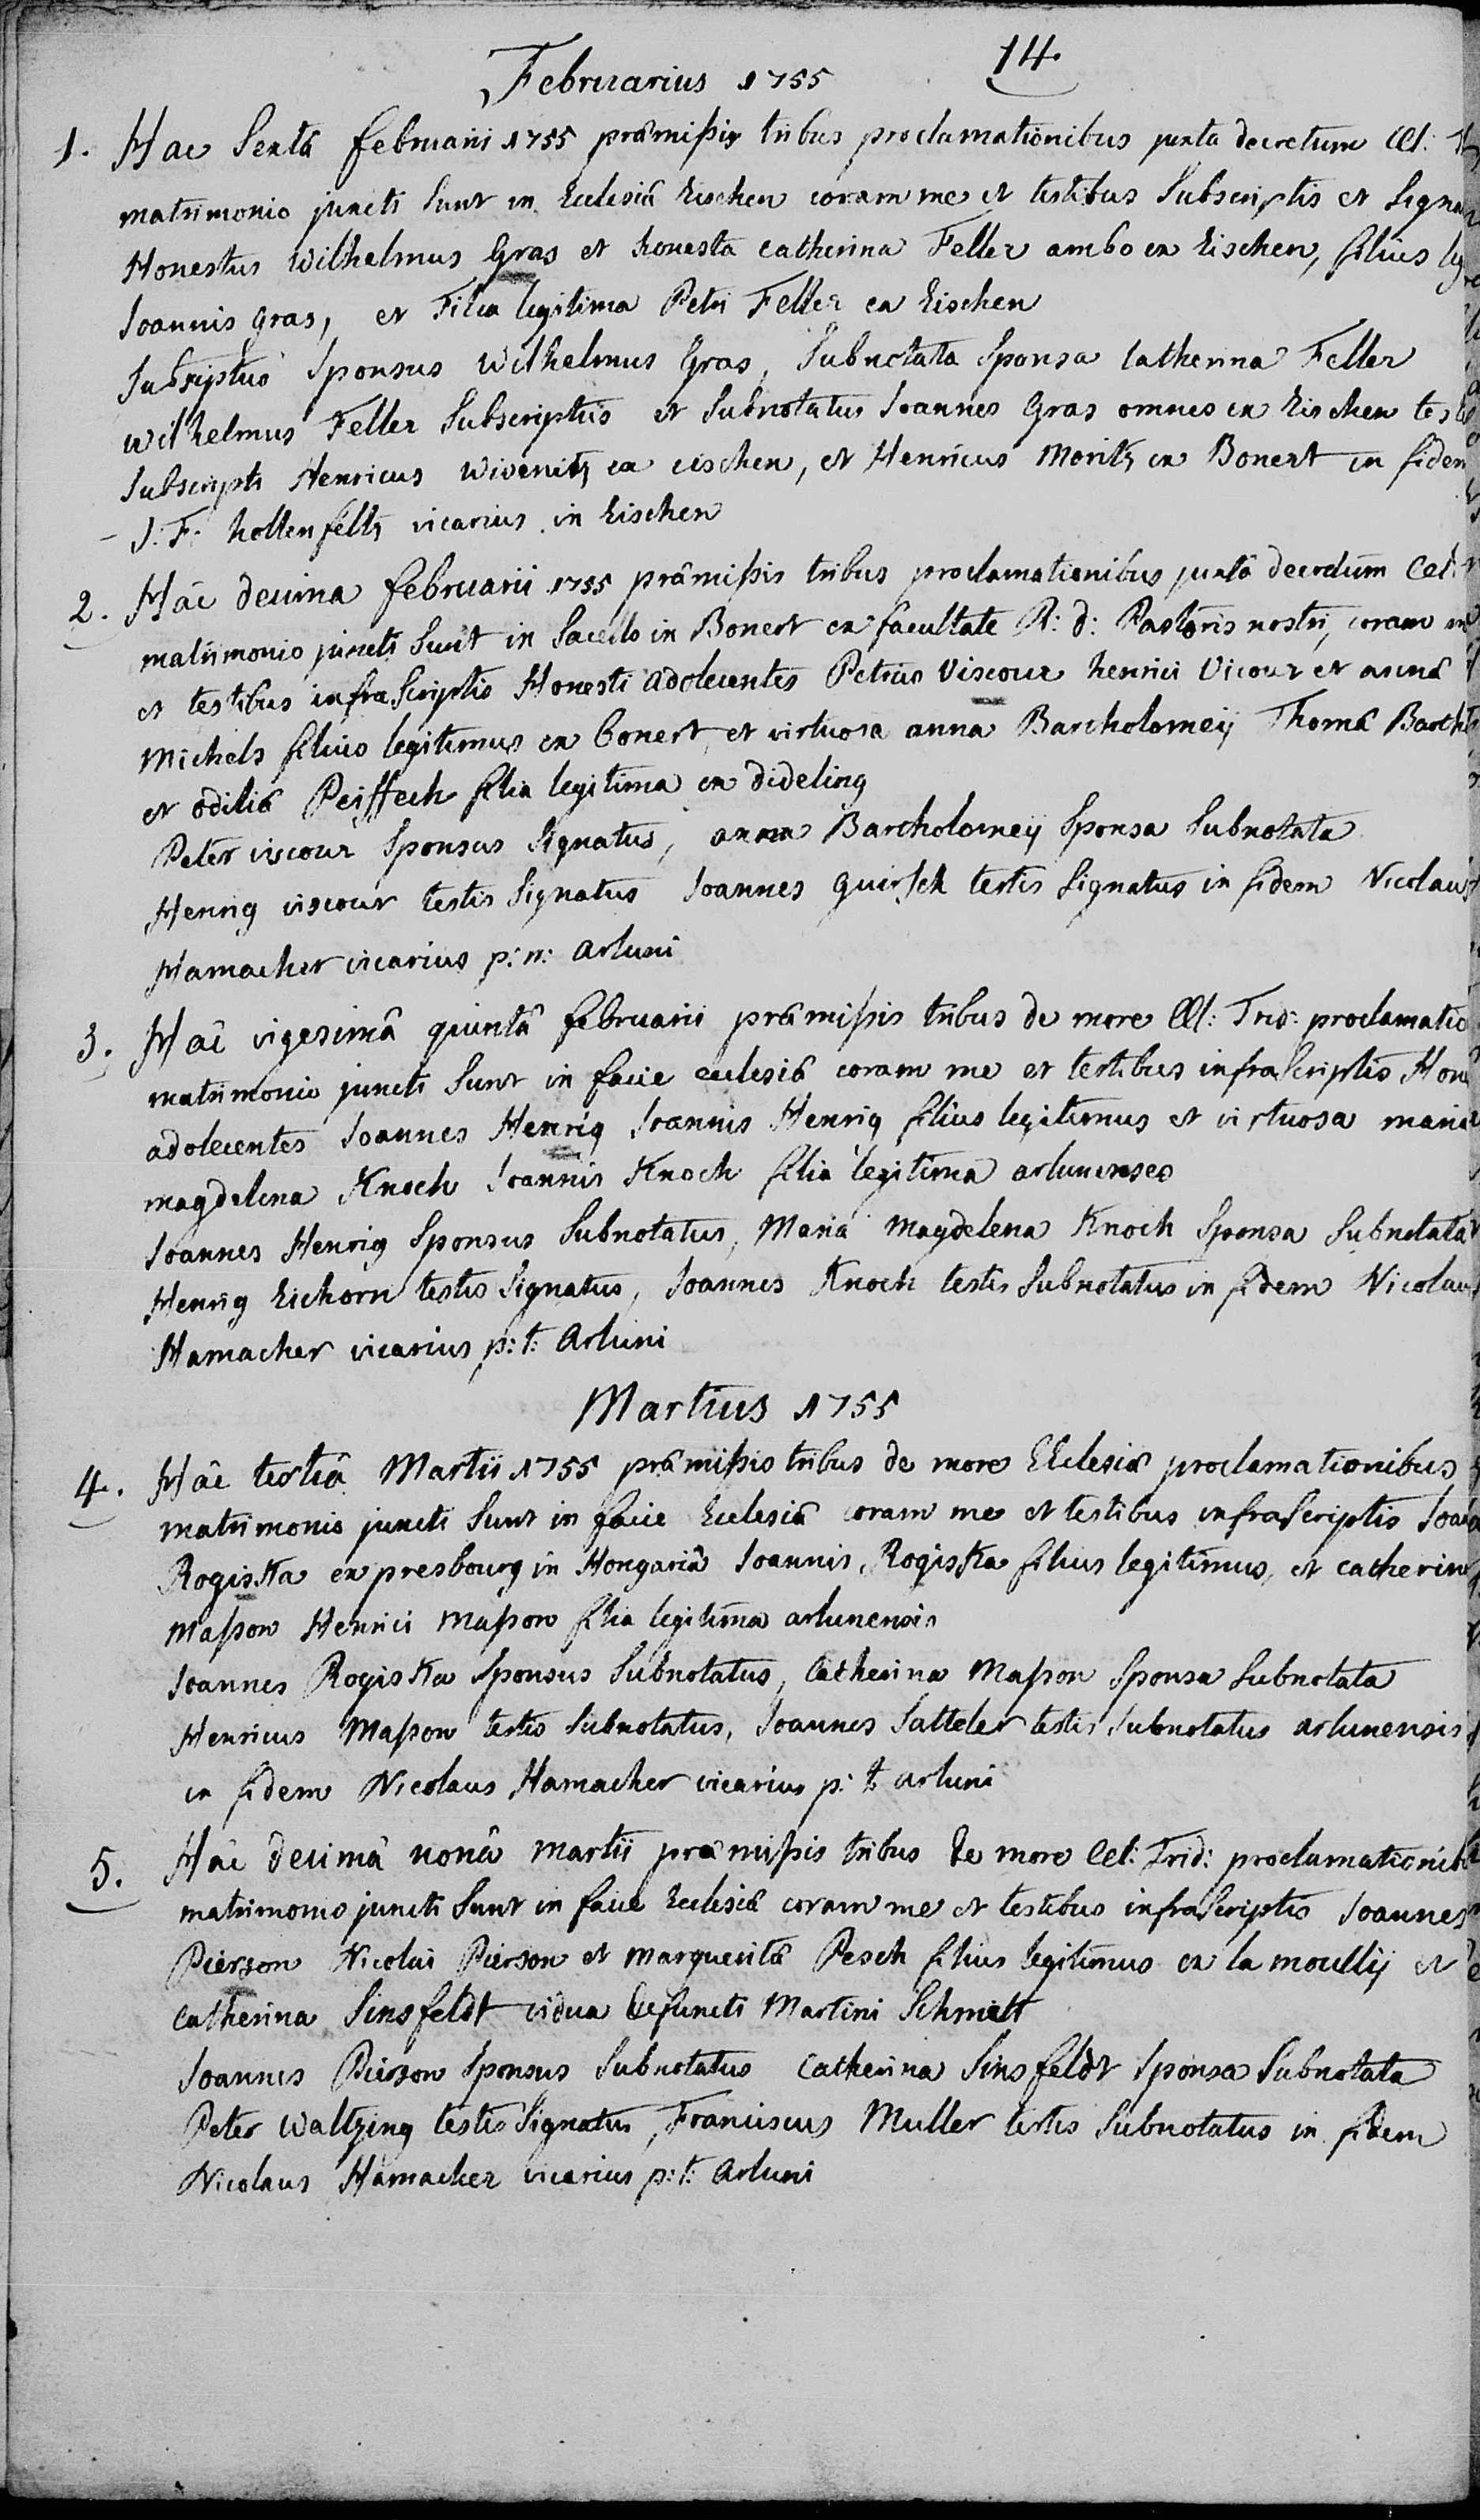 14.
Februarius 1755
1. Hac Sextâ februarii 1755 præmißis tribus proclamationibus juxta decretum CCl:
matrimonio juncti Sunt in Ecclesiâ Eischen coram me et testibus Subscriptis et Signa
Honestus Wilhelmus Gras et honesta catherina Feller ambo ex Eischen, filius
Joannis Gras, et Filia legitima Petri Feller ex Eischen
Subscriptus Sponsus Wilhelmus Gras, Subnotata Sponsa Catherina Feller
wilhelmus Feller Subscriptus et Subnotatus Joannes Gras omnes ex Eischen testes
Subscripti Henricus wivenitz ex eischen, et Henricus Moritz ex Bonert in fidem
J: F: hollenfeltz vicarius in Eischen
2. Hâc decima februarii 1755 præmißis tribus proclamationibus juxtâ decretum CCl:
matrimonio juncti Sunt in Sacello in Bonert ex facultate R: d: Pastoris nostri, coram me
et testibus infraScriptis Honesti adolecentes Petrus Viscour henrici Vicour et annæ
Michels filius legitimus ex bonert et virtuosa anna Bartholomeÿ Thomæ Barth
et odiliæ Peiffech filia legitima ex dideling
Peter viscour Sponsus Signatus, anna Bartholomeÿ Sponsa Subnotata
Henrig viscour testis Signatus Joannes quirsch testis Signatus in fidem Nicolaus
Hamacher vicarius p: n: arluni
3. Hâc vigesimâ quintâ februarii præmißis tribus de more CCl: Trid: proclamatio
matrimonio juncti Sunt in facie ecclesiæ coram me et testibus infraScriptis Hon
adolecentes Joannes Henrig Joannis Henrig filius legitimus et virtuosa maria
magdelena Knoch Joannis Knoch filia legitima arlunenses
Joannes Henrig Sponsus Subnotatus, Maria Magdelena Knoch Sponsa Subnotata
Henrig Eichorn testis Signatus, Joannes Knoch testis Subnotatus in fidem Nicolaus
Hamacher vicarius p: t: Arluni
Martius 1755
4. Hâc tertiâ Martii 1755 præmißis tribus de more Ecclesiæ proclamationibus
matrimonio juncti Sunt in facie Ecclesiæ coram me et testibus infraScriptis Joa
RogisKa ex presbourg in Hongariâ Joannis RogisKa filius legitimus, et catherin
Maßon Henrici Maßon filia legitima arlunensis
Joannes RogisKa Sponsus Subnotatus, Catherina Maßon Sponsa Subnotata
Henricus Maßon testis Subnotatus, Joannes Satteler testis Subnotatus arlunensis
in fidem Nicolaus Hamacher vicarius p: t: arluni
5. Hâc decimâ nonâ martii præmißis tribus de more CCl: Trid: proclamationib
matrimonio juncti Sunt in facie Ecclesiæ coram me et testibus infraScriptis Joannes
Pierson Nicolai Pierson et margueritæ Pesch filius legitimus ex la moullÿ et
Catherina Sinsfeldt vidua defuncti Martini Schmitt
Joannes Pierson Sponsus Subnotatus Catherina Sinsfeldt Sponsa Subnotata
Peter Waltzing testis Signatus, Franciscus Muller testis Subnotatus in fidem
Nicolaus Hamacher vicarius p: t: Arluni